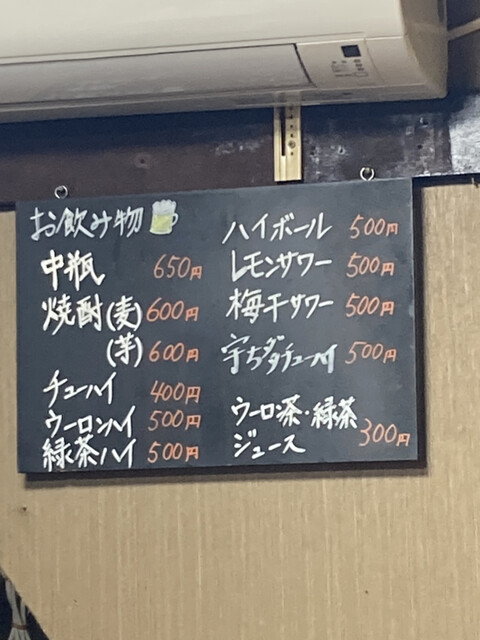 お飲み物
中瓶 650円
焼酎(麦) 600円
(芋) 600円
チューハイ 400円
ウーロンハイ 500円
緑茶ハイ 500円
ハイボール 500円
レモンサワー 500円
梅干サワー 500円
チューハイ 500円
ウーロン茶・緑茶
ジュース 300円